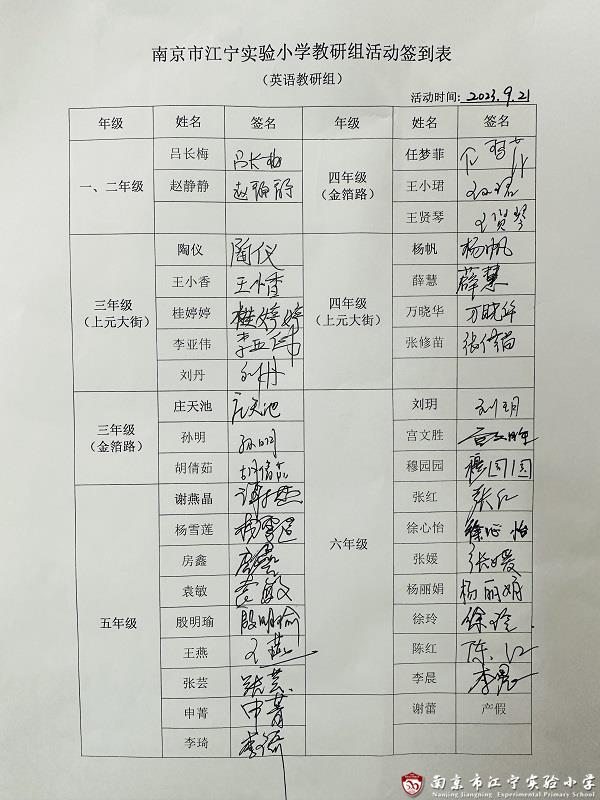 南京市江宁实验小学教研组活动签到表
（英语教研组）
活动时间: 2023.9.21
年级 姓名 签名 年级 姓名 签名
一、二年级 吕长梅 吕长梅 四年级（金箔路） 任梦菲
赵静静 赵静静 王小珺
王贤琴 王贤琴
三年级（上元大街） 陶仪 陶仪 四年级（上元大街） 杨帆 杨帆
王小香 王小香 薛慧 薛慧
桂婷婷 桂婷婷 万晓华 万晓华
李亚伟 李亚伟 张修苗 张修苗
刘丹 刘丹
三年级（金箔路） 庄天池 庄天池 六年级 刘玥 刘玥
孙明 孙明 宫文胜 宫文胜
胡倩茹 胡倩茹 穆园园 穆园园
五年级 谢燕晶 张红 张红
杨雪莲 徐心怡 徐心怡
房鑫 房鑫 张媛 张媛
袁敏 袁敏 杨丽娟 杨丽娟
殷明瑜 殷明瑜 徐玲 徐玲
王燕 王燕 陈红 陈红
张芸 张芸 李晨 李晨
申菁 申菁 谢蕾 产假
李琦 李琦
南京市江宁实验小学
Nanjing Jiangning Experimental Primary School